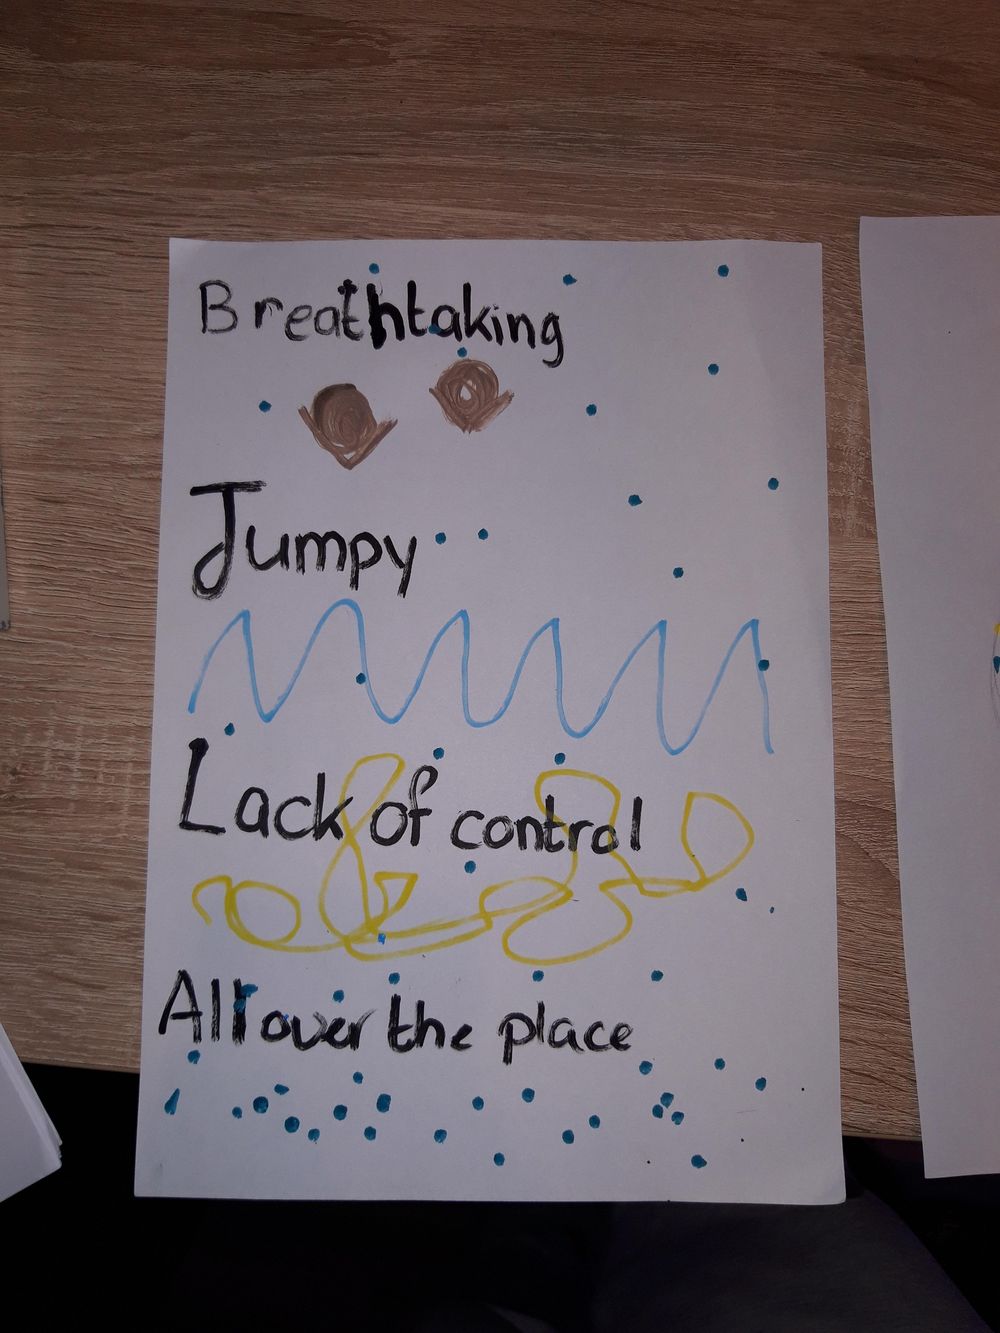 Breathtaking
Jumpy
Lack of control
All over the place